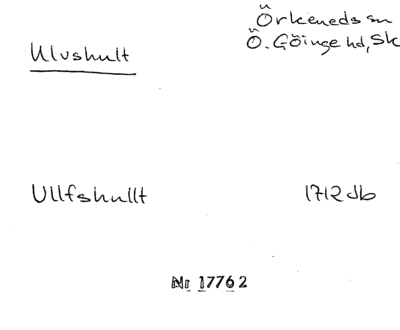 Örkeneds sn
Ulvshult Ö. Göinge hd, Sk
Ullfshullt 1712 db
Nr 17762